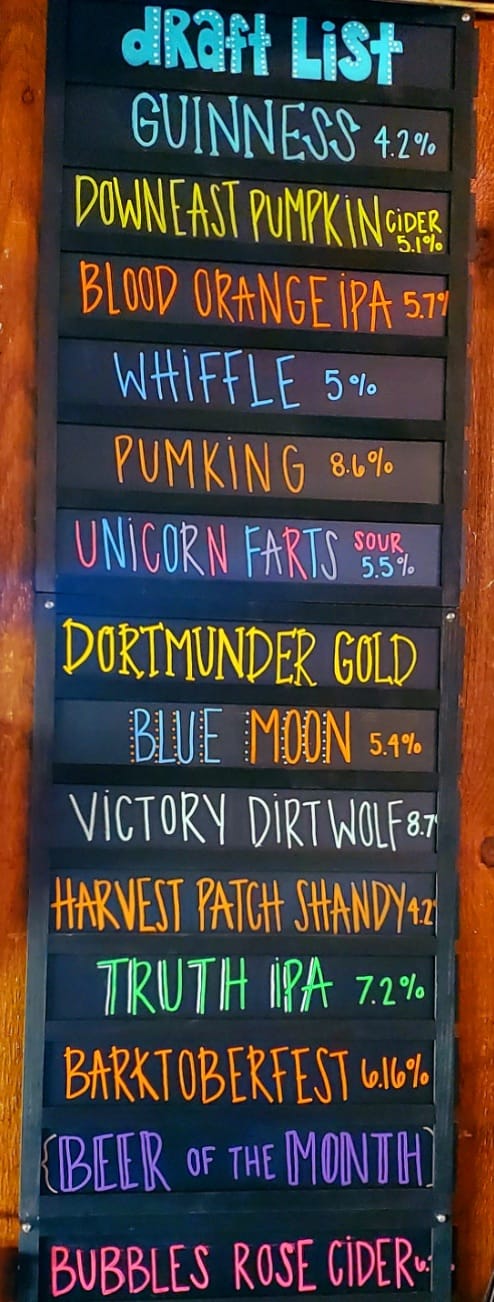 dRaft List
GUINNESS 4.2%
DOWNEAST PUMPKIN CiDER 5.1%
BLOOD ORANGE iPA 5.7%
WHiFFLE 5%
PUMKiNG 8.6%
UNiCORN FARTS SOUR 5.5%
DORTMUNDER GOLD
BLUE MOON 5.4%
ViCTORY DiRTWOLF 8.7
HARVEST PATCH SHANDY 4.2
TRUTH iPA 7.2%
BARKTOBERFEST 6.16%
{BEER OF THE MONTH}
BUBBLES ROSE CiDER